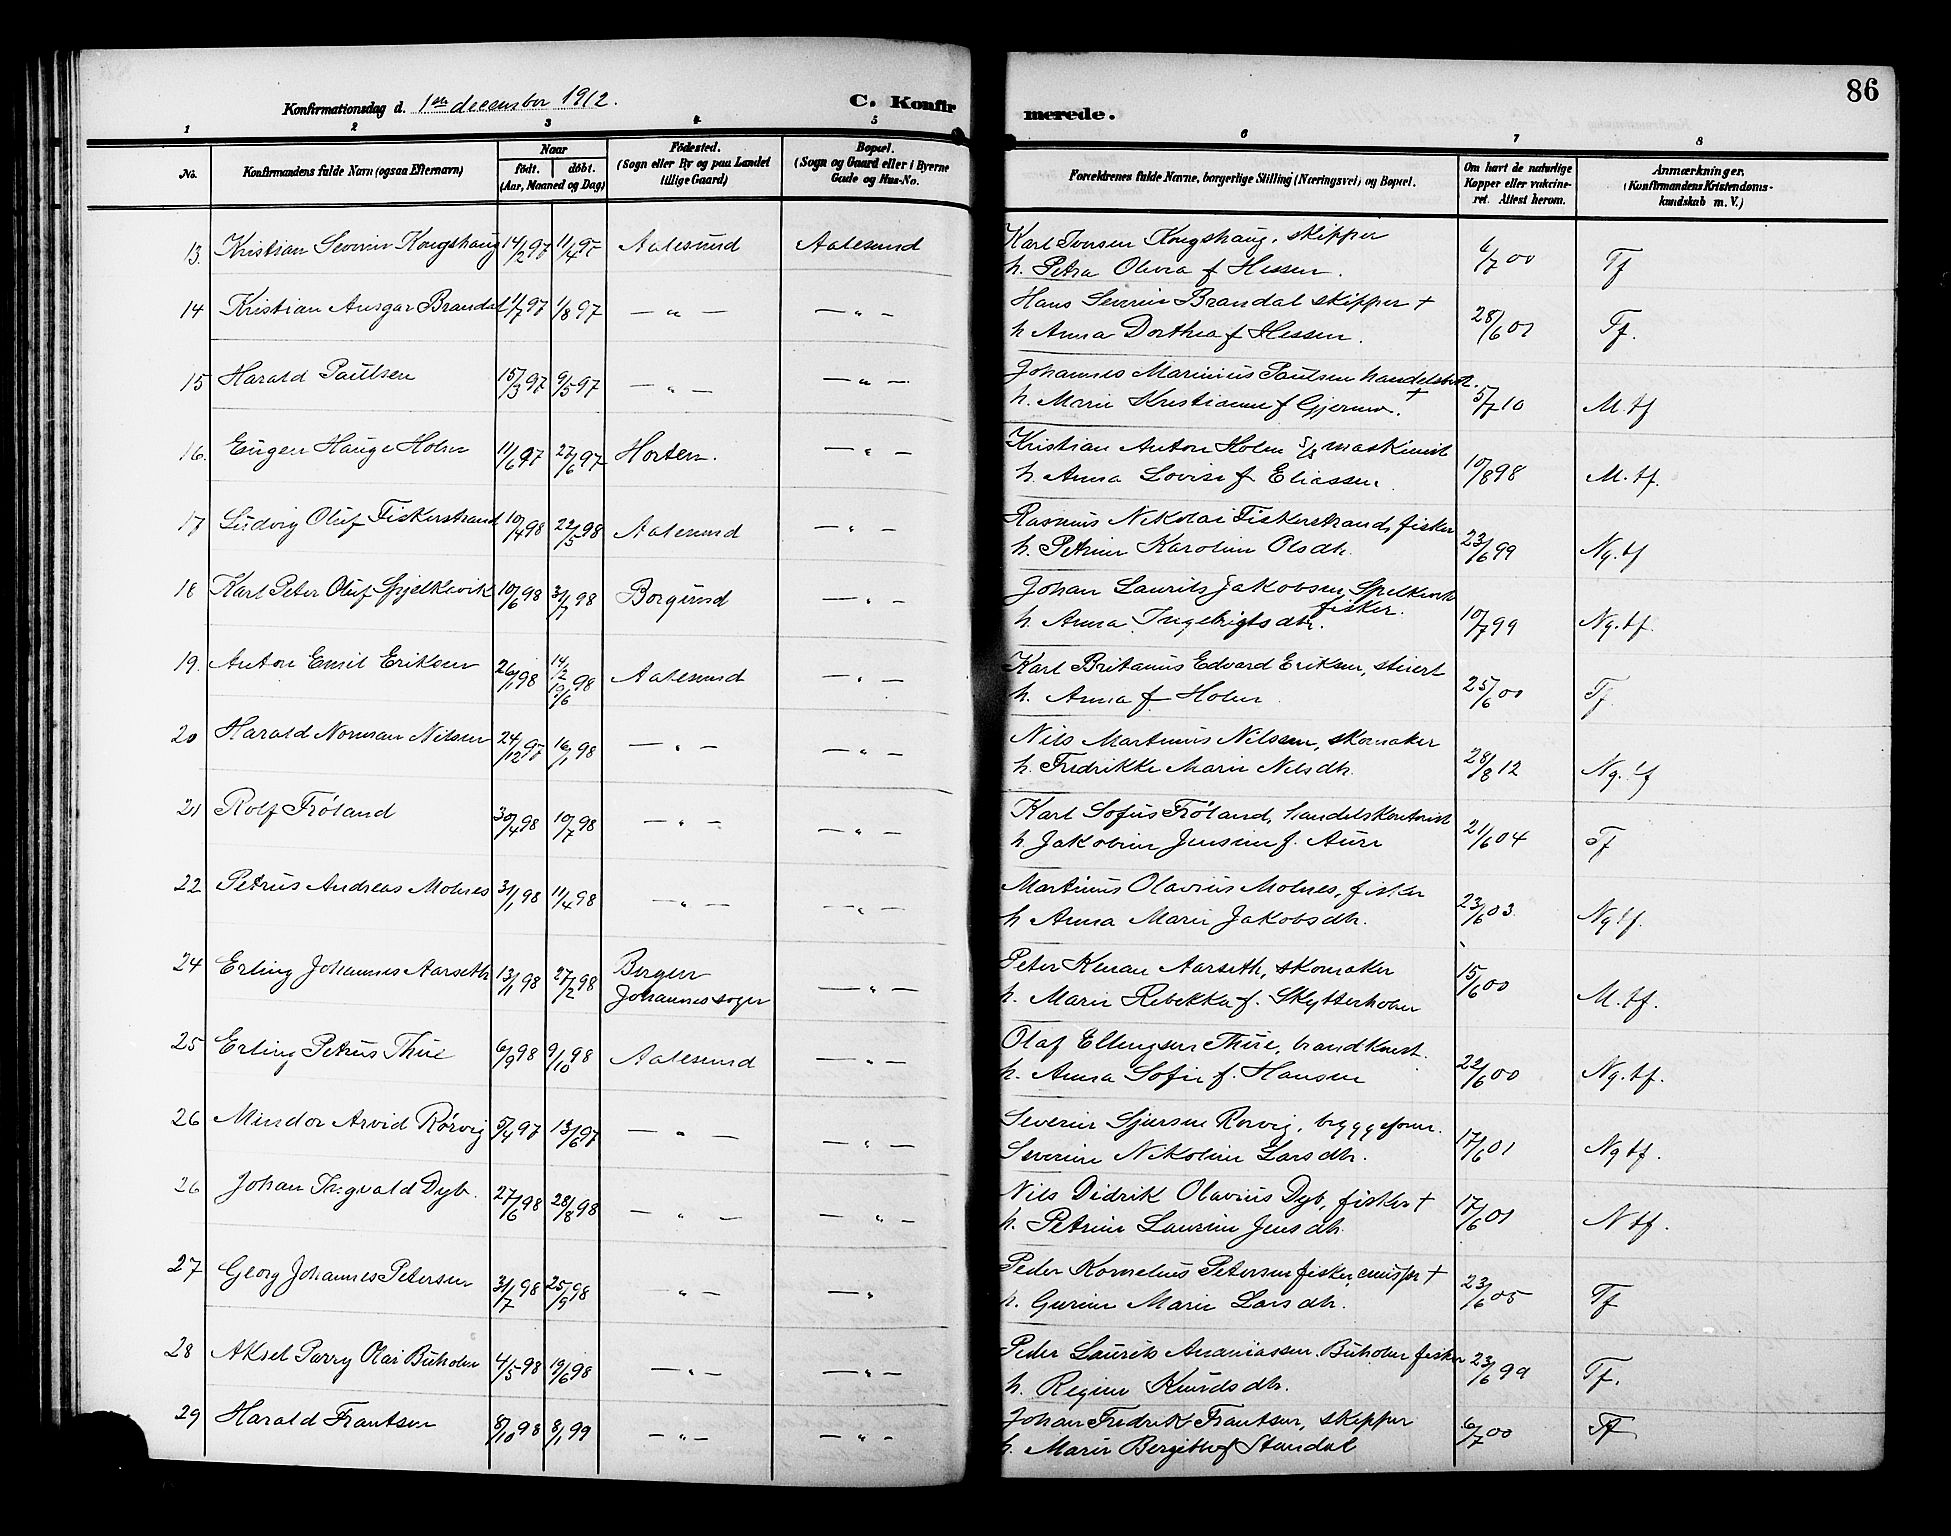 86
Konfirmationsdag d. 1ste december 1912. C. Konfirmerede.
1 2 3 4 5 6 7 8
No. Konfirmandens fulde Navn (ogsaa Efternavn) Naar født. døbt. (Aar, Maaned og Dag) Fødested. (Sogn eller By og paa Landet tillige Gaard) Bopæl. (Sogn og Gaard eller i Byerne Gade og Hus-No. Forældrenes fulde Navne, borgerlige Stilling (Næringsvei) og Bopæl. Om havt de naturlige Kopper eller vakcineret. Attest herom. Anmærkninger. (Konfirmandens Kristendomskundskab m. V.)
13. Kristian Severin Kongshaug 14/2 97 11/4 97 Aalesund Aalesund Karl Iversen Kongshaug, skipper 4/7 00 Tf
h. Petra Olivia f Hessen.
14 Kristian Ansgar Brandal 11/7 97 1/8 97 — " — — " — Hans Severin Brandal skipper + 28/6 01 Tf.
h Anna Dorthea f Hessen.
15 Harald Paulsen 15/3 97 9/5 97 — " — — " — Johannes Marinius Paulsen handelsbest. 5/7 10 M. tf
h. Marie Kristianne f Gjerme. +
16. Eugen Hauge Holm 11/6 97 27/6 97 Horten. — " — Kristian Anton Holm s/s maskinist 10/8 98 M. tf.
h. Anna Lovise f Eliassen.
17 Ludvig Oluf Fiskerstrand 10/4 98 22/5 98 Aalesund — " — Rasmus Nikolai Fiskerstrand, fisker 23/6 99 Ng. tf
h. Petrine Karoline Olsdtr.
18 Karl Peter Oluf Spjelkavik 10/6 98 31/7 98 Borgund — " — Johan Laurits Jakobsen Spelkevik
fisker.
h. Anna Ingebrigtsdtr. 10/7 99 Ng. tf.
19. Anton Emil Eriksen 26/1 98 14/2 19/6 98 Aalesund — " — Karl Britanus Edvard Eriksen, stuert 25/6 00 Tf.
h. Anna f Holm
20 Harald Norman Nilsen 24/12 97 16/1 98 — " — — " — Nils Martinus Nilssen, skomaker 28/8 12 Ng. tf
h. Fredrikke Marie Nilsdtr.
21 Rolf Frøland 30/4 98 10/7 98 — " — — " — Karl Sofus Frøland, handelskontorist 21/6 04 Tf
h. Jakobine Jensine f. Aure
22 Petrus Andreas Molnes 31/1 98 11/4 98 — " — — " — Martinus Olavius Molnes, fisker 23/6 03 Ng tf.
h Anna Marie Jakobsdtr.
24 Erling Johannes Aarseth 13/1 98 27/2 98 Bergen Johannes sogn — " — Peter Kenan Aarseth, skomaker 15/6 00 M. tf.
h. Marie Rebekka f. Skytterholm
25 Erling Petrus Thue 6/9 98 9/10 98 Aalesund — " — Olaf Ellingsen Thue, brandkonst. 22/6 00 Ng. tf.
h. Anna Sofie f. Hansen
26 Mindor Arvid Rørvig 5/4 97 13/6 97 — " — — " — Severin Sjursen Rørvig, bryggeform. 17/6 01 Ng tf.
Severine Nikoline Larsdtr.
26 Johan Ingvald Dyb. 27/6 98 28/8 98 — " — — " — Nils Didrik Olavius Dyb, fisker + 17/6 01 N tf.
h. Petrine Laurine Jensdtr.
27 Georg Johannes Petersen 31/7 98 25/9 98 — " — — " Peder Kornelius Petersen fisker, +
h. Gurine Marie Larsdtr. 23/6 05 Tf
28 Aksel Parry Olai Buholm 4/5 98 19/6 98 — " — — " — Peder Laurits Ananiassen Buholm fisker 23/6 99 Tf.
h. Regine Knudsdtr.
29 Harald Frantsen 8/10 98 8/1 99 — " — — " — Johan Fredrik Frantsen, skipper 6/7 00 Tf
h. Marie Bergitte f Standal